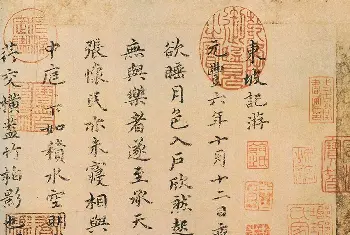 東坡記游
元豐六年十月十二日夜
欲睡月色入戶欣然起
無與樂者遂至承天
張懷民亦未寢相與
中庭下如積水空明
荇交橫蓋竹柏影也